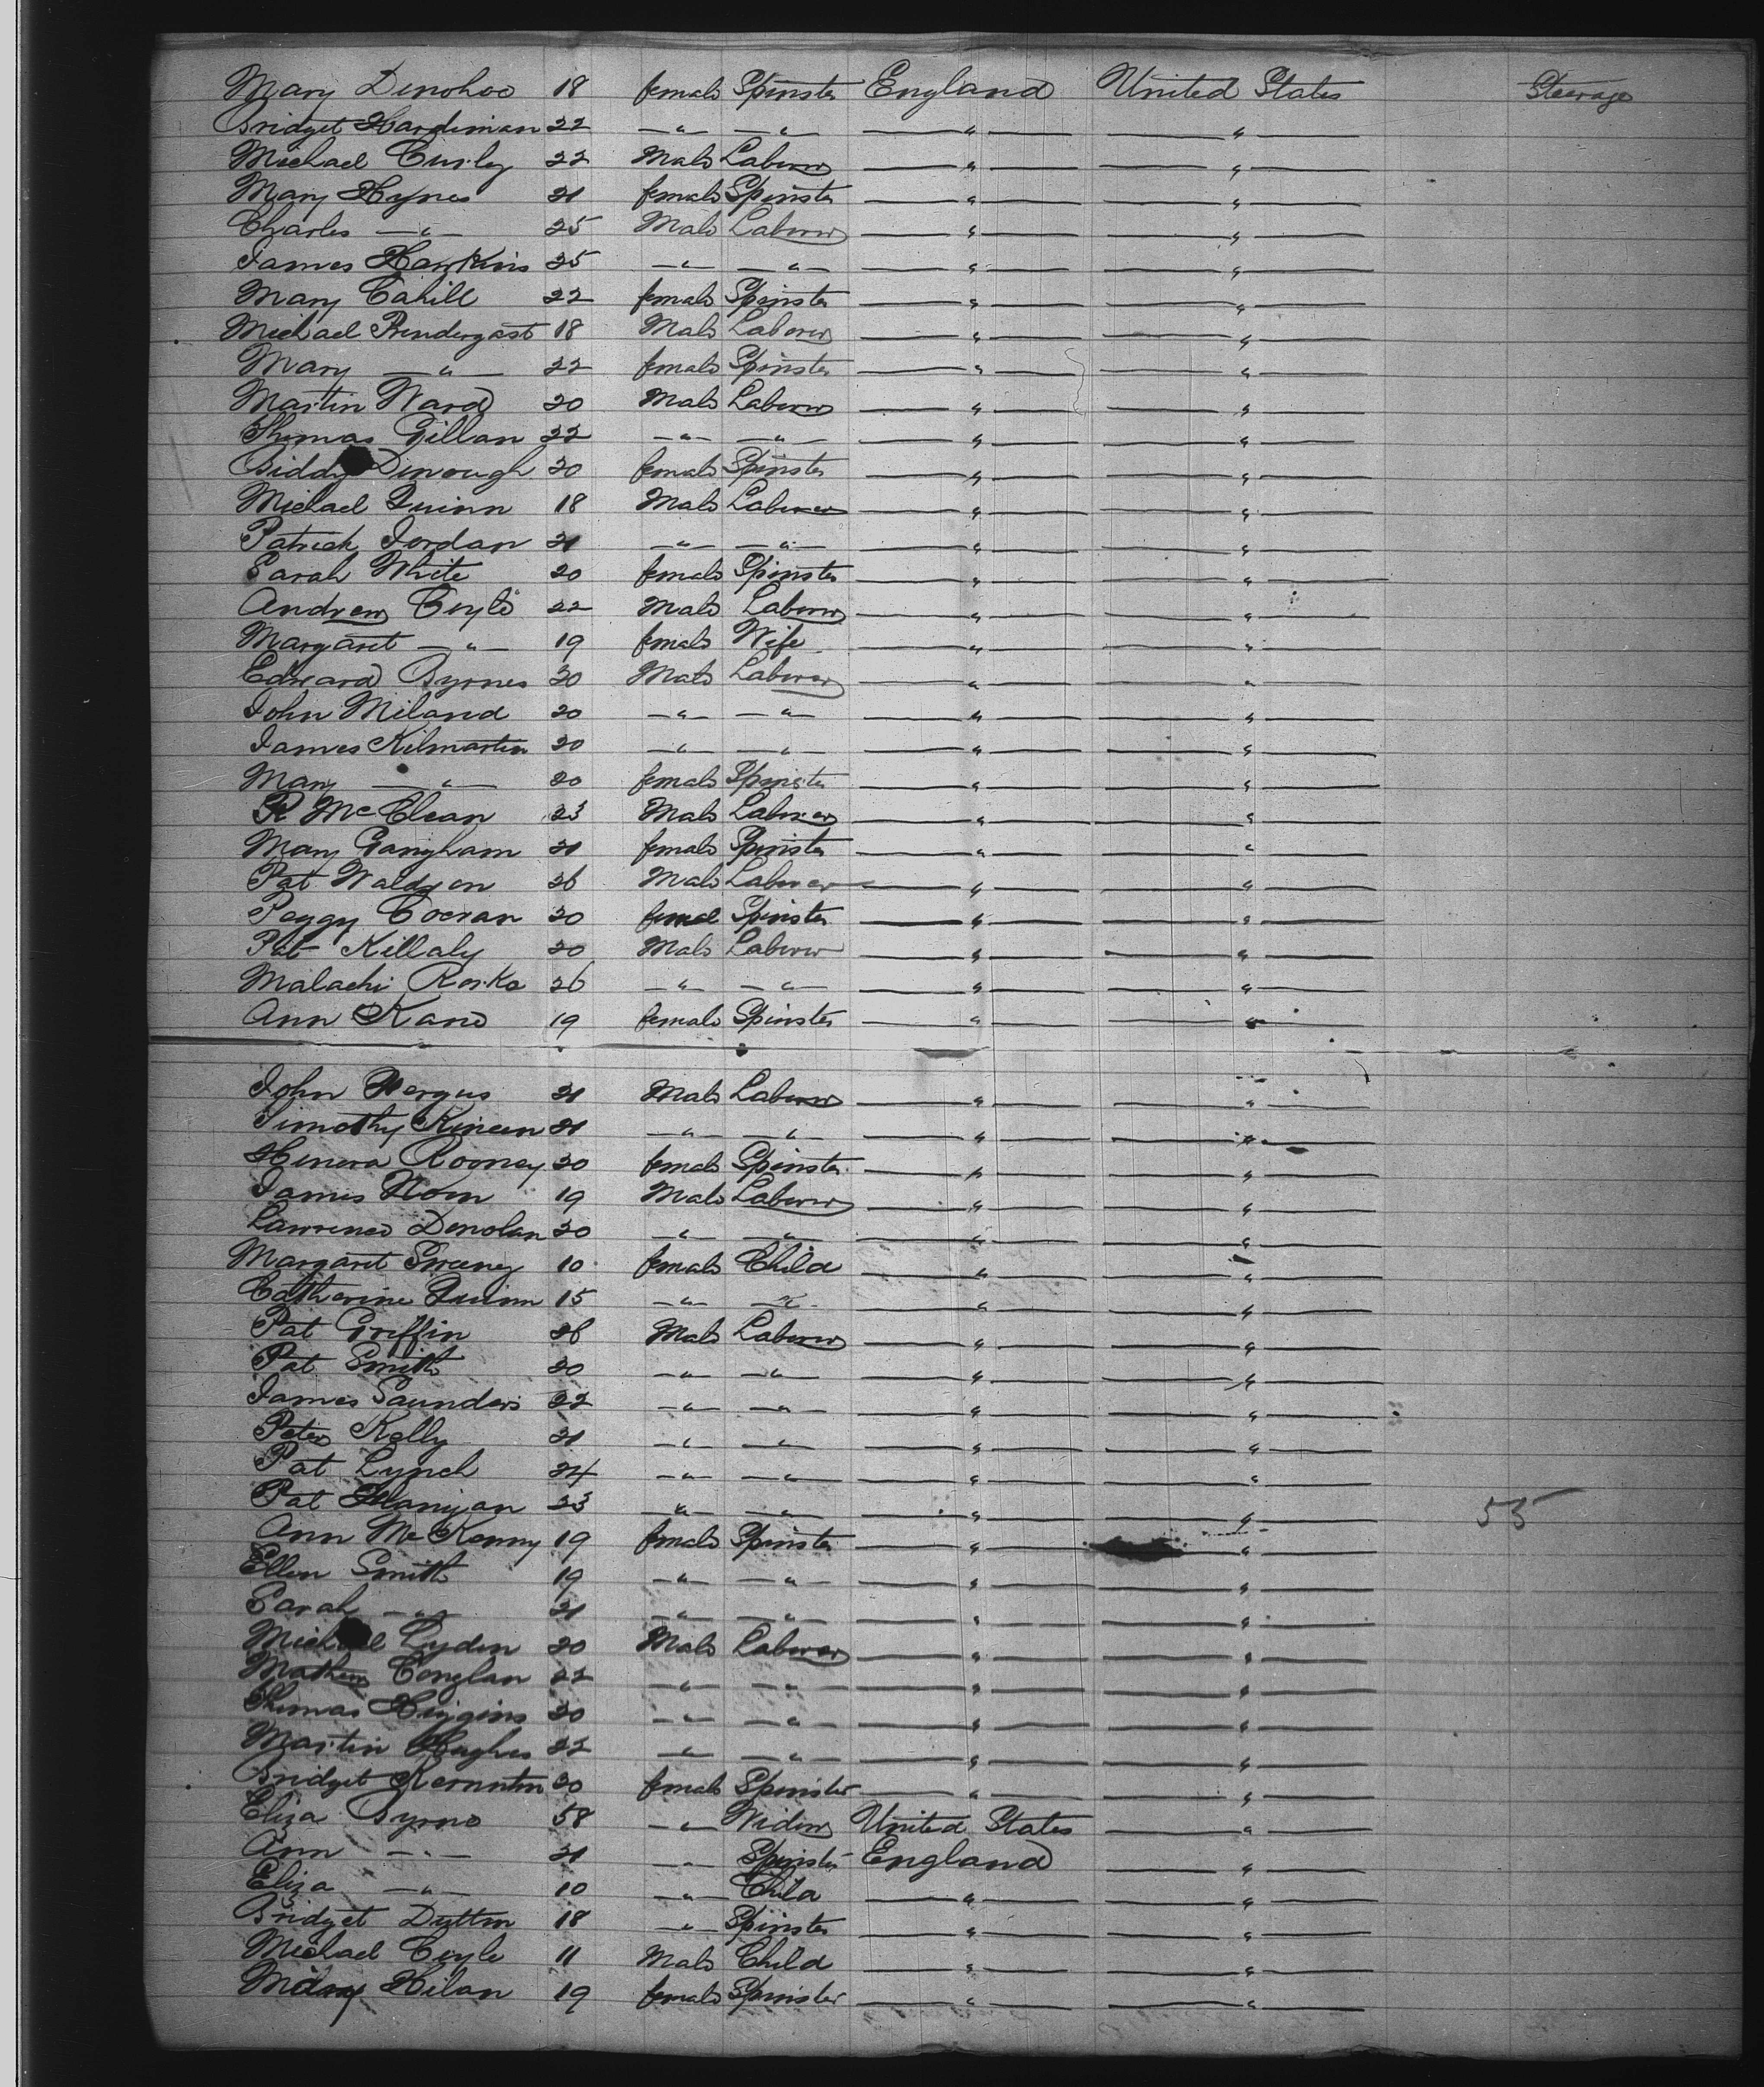 Mary Donohoe 18 female Spinster England United States Steerage
Bridget Hardiman 22 " " " "
Michael Curly 22 Male Laborer " "
Mary Hynes 21 female Spinster " "
Charles " 25 Male Laborer " "
James Hawkins 25 " " " "
Mary Cahill 22 female Spinster " "
Michael Prendergast 18 Male Laborer " "
Mary " 22 female Spinster " "
Martin Ward 20 Male Laborer " "
Thomas Gillan 22 " " " "
Biddy Dinough 20 female Spinster " "
Michael Quinn 18 Male Laborer " "
Patrick Jordan 21 " " " "
Sarah White 20 female Spinster " "
Andrew Coyle 22 Male Laborer " "
Margaret " 19 female Wife " "
Edward Byrnes 20 Male Laborer " "
John Miland 20 " " " "
James Kilmartin 20 " " " "
Mary " 20 female Spinster " "
R McClean 23 Male Laborer " "
Mary Gangham 21 female Spinster " "
Pat Waldron 26 Male Laborer " "
Peggy Cocran 20 female Spinster " "
Pat Killaly 20 Male Laborer " "
Malachi 26 " " " "
Ann Kane 19 female Spinster " "
John 21 Male Laborer " "
Timothy 21 " " " "
Henora Rooney 20 female Spinster " "
James 19 Male Laborer " "
Lawrence Denolan 20 " " " "
Margaret Sweeny 10 female Child " "
Catherine Quinn 15 " " " "
Pat Griffin 26 Male Laborer " "
Pat Smith 20 " " " "
James Saunders 22 " " " "
Peter Kelly 21 " " " "
Pat Lynch 24 " " " "
Pat Flanigan 23 " " " " 55
Ann McKenny 19 female Spinster " "
Ellen Smith 19 " " " "
Sarah " 21 " " " "
Michael Lyden 20 Male Laborer " "
Mathew Conglan 22 " " " "
Thomas Higgins 20 " " " "
Martin Hughes 22 " " " "
Bridget 20 female Spinster " "
Eliza Byrne 58 " Widow United States "
Ann " 21 " Spinster England "
Eliza " 10 " Child " "
Bridget Dutton 18 " Spinster " "
Michael Coyle 11 Male Child " "
Mary Hilan 19 female Spinster " "